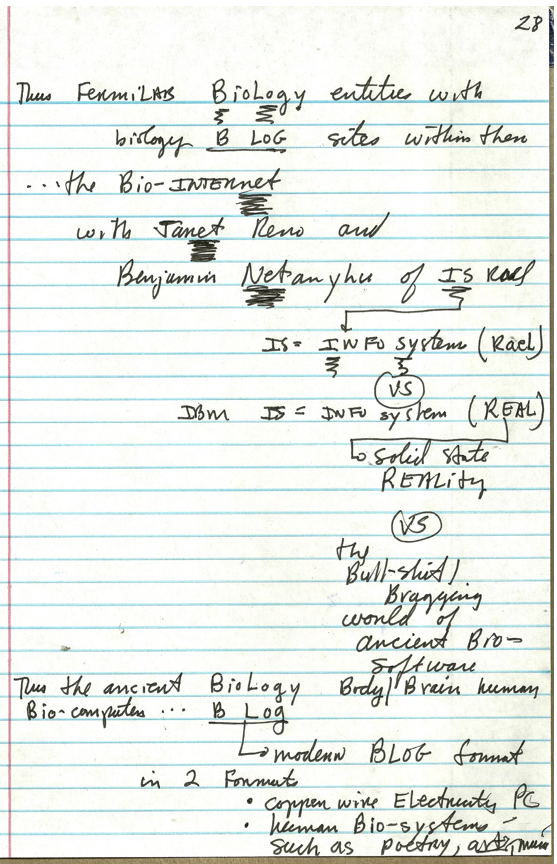 28
Thus FermiLAB BioLogy entities with
biology B LOG sites within them
...the Bio-INTERnet
with Janet Reno and
Benjamin Netanyhu of IS Rael
IS = INFO system (Rael)
VS
IBM IS = INFO system (REAL)
Solid State
REALity
VS
the
Bull-shit/
Bragging
world of
ancient Bio-
Software
Thus the ancient BioLogy Body/Brain human
Bio-computers ... B Log
modern BLOG format
in 2 Formats
• copper wire Electricity PC
• human Bio-systems
such as poetry, art, music